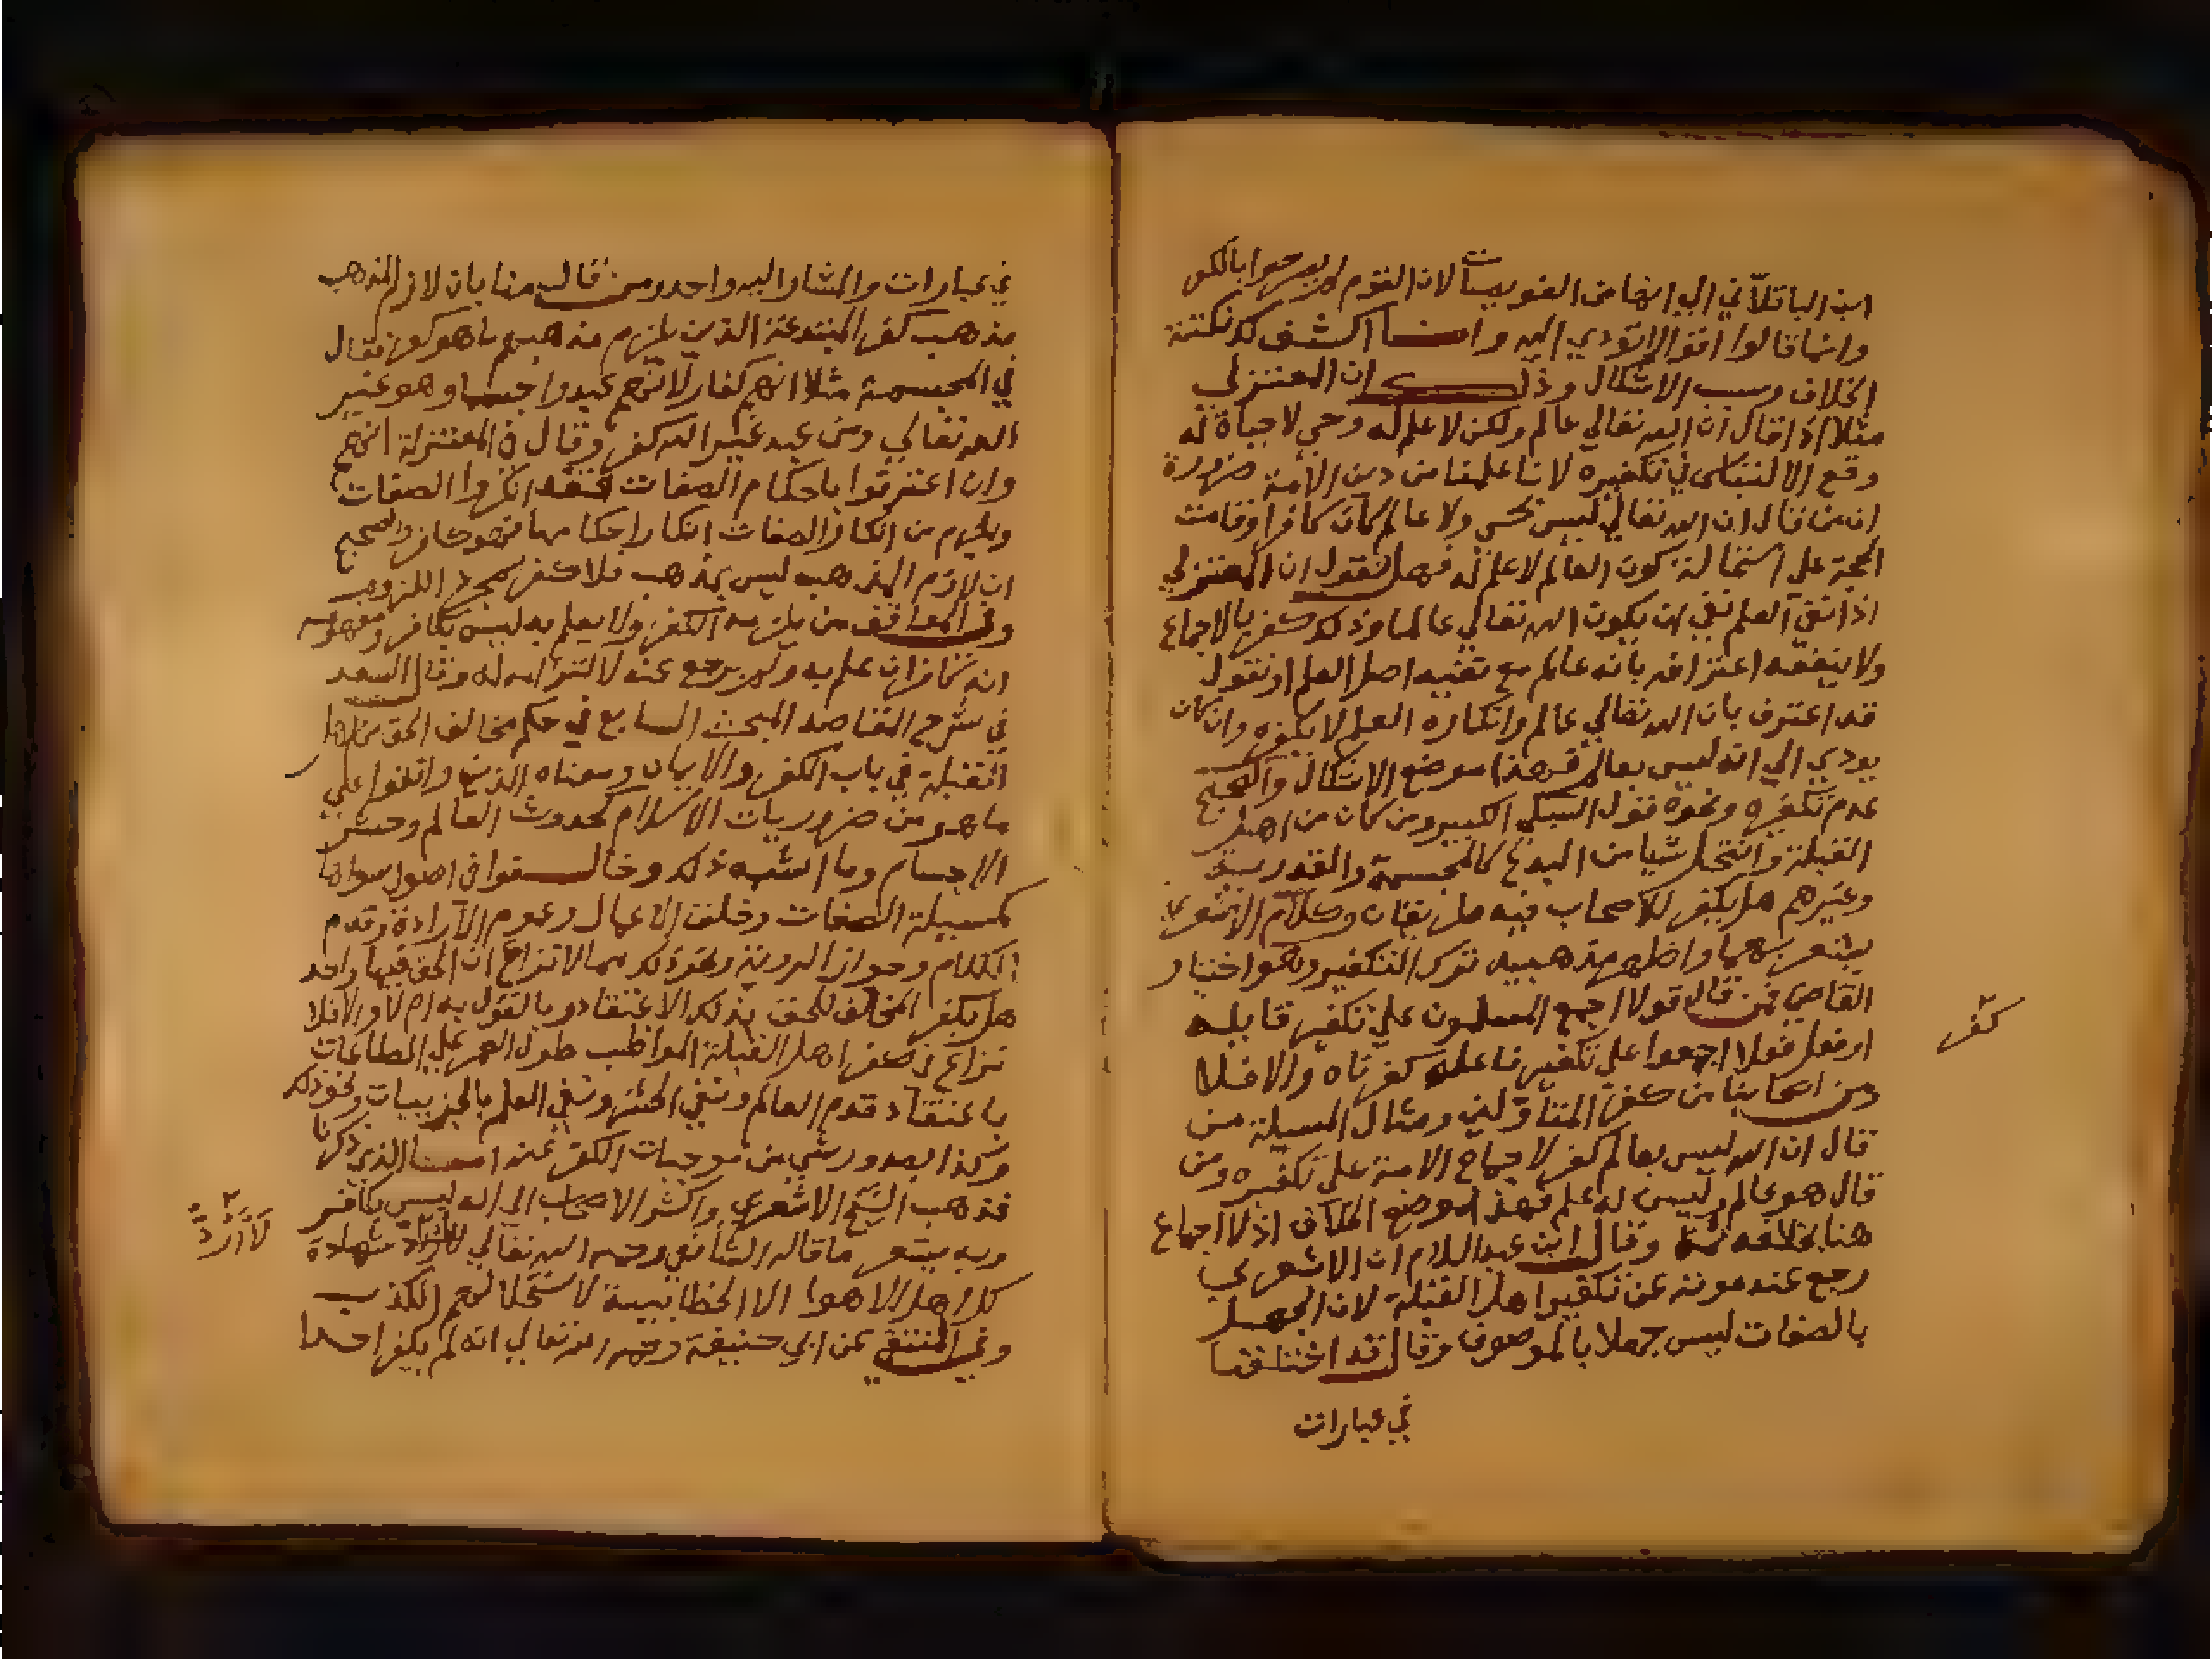 ابن الباقلاني الي انها من العويصات لان القوم لم يصرحوا بالكفر
وانما قالوا اقوالا تؤدي اليه وانما اكشف لك نكتة
الخلاف وسبب الاشكال وذلك ان المعتزلي
مثلا اذا قال ان الله تعالي عالم ولكن لا علم له وحي لا حياة له
وقع الالتباس في تكفيره لانا علمنا من دين الامة ضرورة
ان من قال ان الله تعالي ليس بحي ولا عالم كان كافرا وقامت
الحجة علي استحالة كون العالم لا علم له فهل نقول ان المعتزلي
اذا نفي العلم نفي ان يكون الله تعالي عالما وذلك كفر بالاجماع
ولا ينفعه اعترافه بانه عالم مع نفيه اصل العلم او نقول
قد اعترف بان الله تعالي عالم وانكاره العلم لا يكفره وان كان
يودي الي انه ليس بعالم فهذا موضع الاشكال والصحيح
عدم تكفيره ونحوه قول السبكي الكبير ومن كان من اهل
القبلة وانتحل شيا من البدع كالمجسمة والقدرية
وغيرهم هل يكفر للاصحاب فيه طريقان وكلام الاشعري
يشعر بهما واظهر مذهبيه ترك التكفير وهو اختيار
القاضي فمن قال قولا اجمع المسلمون علي تكفير قايله
او فعل فعلا اجمعوا علي تكفير فاعله كفرناه والا فلا
ومن اصحابنا من كفر المتاولين ومثال المسيلة من
قال ان الله ليس بعالم كفر لاجماع الامة علي تكفيره ومن
قال هو عالم وليس له علم فهذا موضع الخلاف اذ لا اجماع
هنا بخلافه وقال ابن عبد السلام ان الاشعري
رجع عند موته عن تكفير اهل القبلة لان الجهل
بالصفات ليس جهلا بالموصوف وقال قد اختلفنا
في عبارات
كفر
في عبارات والمشار اليه واحد ومن قال منا بان لازم المذهب
مذهب كفر المبتدعة الذين يلزم مذهبهم ما هو كفر فقال
في المجسمة مثلا انهم كفار لانهم عبدوا جسما وهو غير
الله تعالي ومن عبد غير الله كفر وقال في المعتزلة انهم
وان اعترفوا باحكام الصفات فقد انكروا الصفات
ويلزم من انكار الصفات انكار احكامها فهو كافر والصحيح
ان لازم المذهب ليس بمذهب فلا كفر بمجرد اللزوم
وفي المواقف من يلزمه الكفر ولا يعلم به ليس بكافر ومفهومه
انه كافر ان علم به ولم يرجع عنه لالتزامه له وقال السعد
في شرح المقاصد المبحث السابع في حكم مخالف الحق من اهل
القبلة في باب الكفر والايمان ومعناه الذين اتفقوا علي
ما هو من ضروريات الاسلام كحدوث العالم وحشر
الاجسام وما اشبه ذلك وخالفوا في اصول سواها
كمسيلة الصفات وخلق الاعمال وعموم الارادة وقدم
الكلام وجواز الروية ونحو ذلك مما لا نزاع ان الحق فيها واحد
هل يكفر المخالف للحق بذلك الاعتقاد وبالقول به ام لا والا فلا
نزاع في كفر اهل القبلة المواظب طول العمر علي الطاعات
باعتقاد قدم العالم ونفي الحشر ونفي العلم بالجزييات ونحو ذلك
وكذا بصدور شي من موجبات الكفر عنه اما الذي ذكرنا
فذهب الشيخ الاشعري واكثر الاصحاب الي انه ليس بكافر
وبه يشعر ما قاله الشافعي رحمه الله تعالي شهادة
لا ارد
كل اهل الاهوا الا الخطابية لاستحلالهم الكذب
وفي المنتقي عن ابي حنيفة رحمه الله تعالي انه لم يكفر احدا